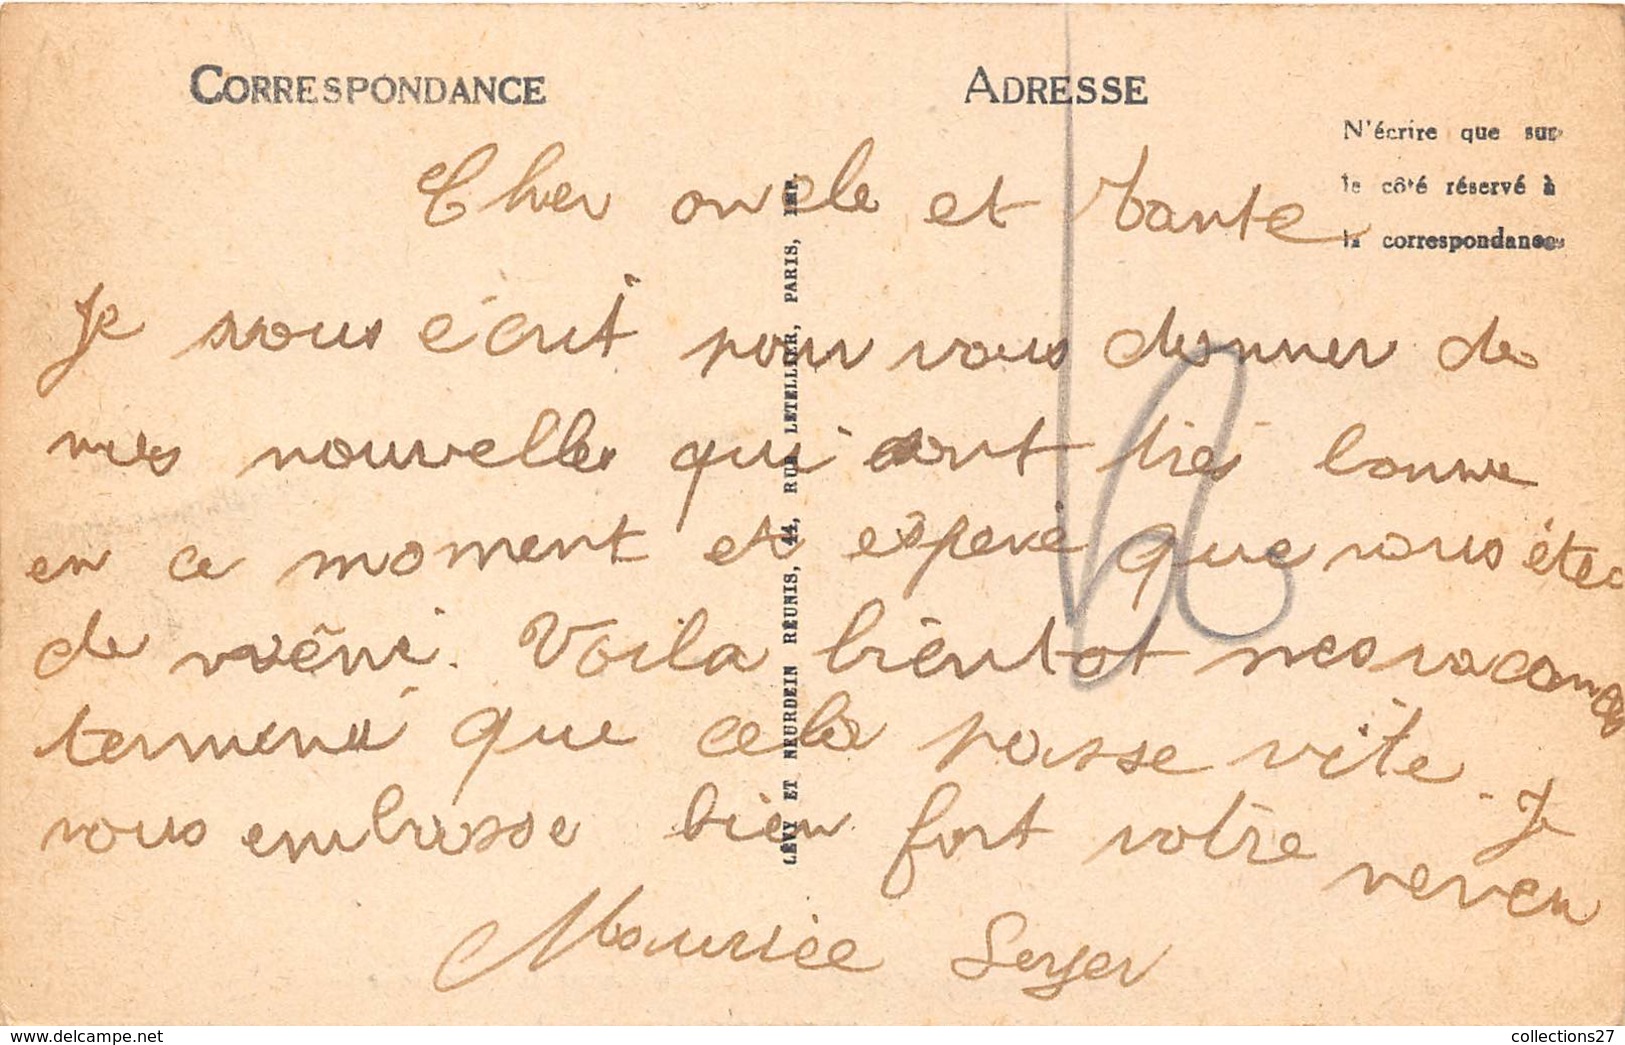 CORRESPONDANCE
ADRESSE
N'écrire que sur
le côté réservé à
la correspondance
Cher oncle et Tante
Je vous écrit pour vous donner de
mes nouvelles qui sont très bonne
en ce moment et espère que vous étes
de même. Voila bientot mes vacances
terminé que cela passe vite. Je
vous embrasse bien fort votre neveu
Maurice
LÉVY ET NEURDEIN RÉUNIS, 44, RUE LETELLIER, PARIS, IMP.
www.delcampe.net
collections27